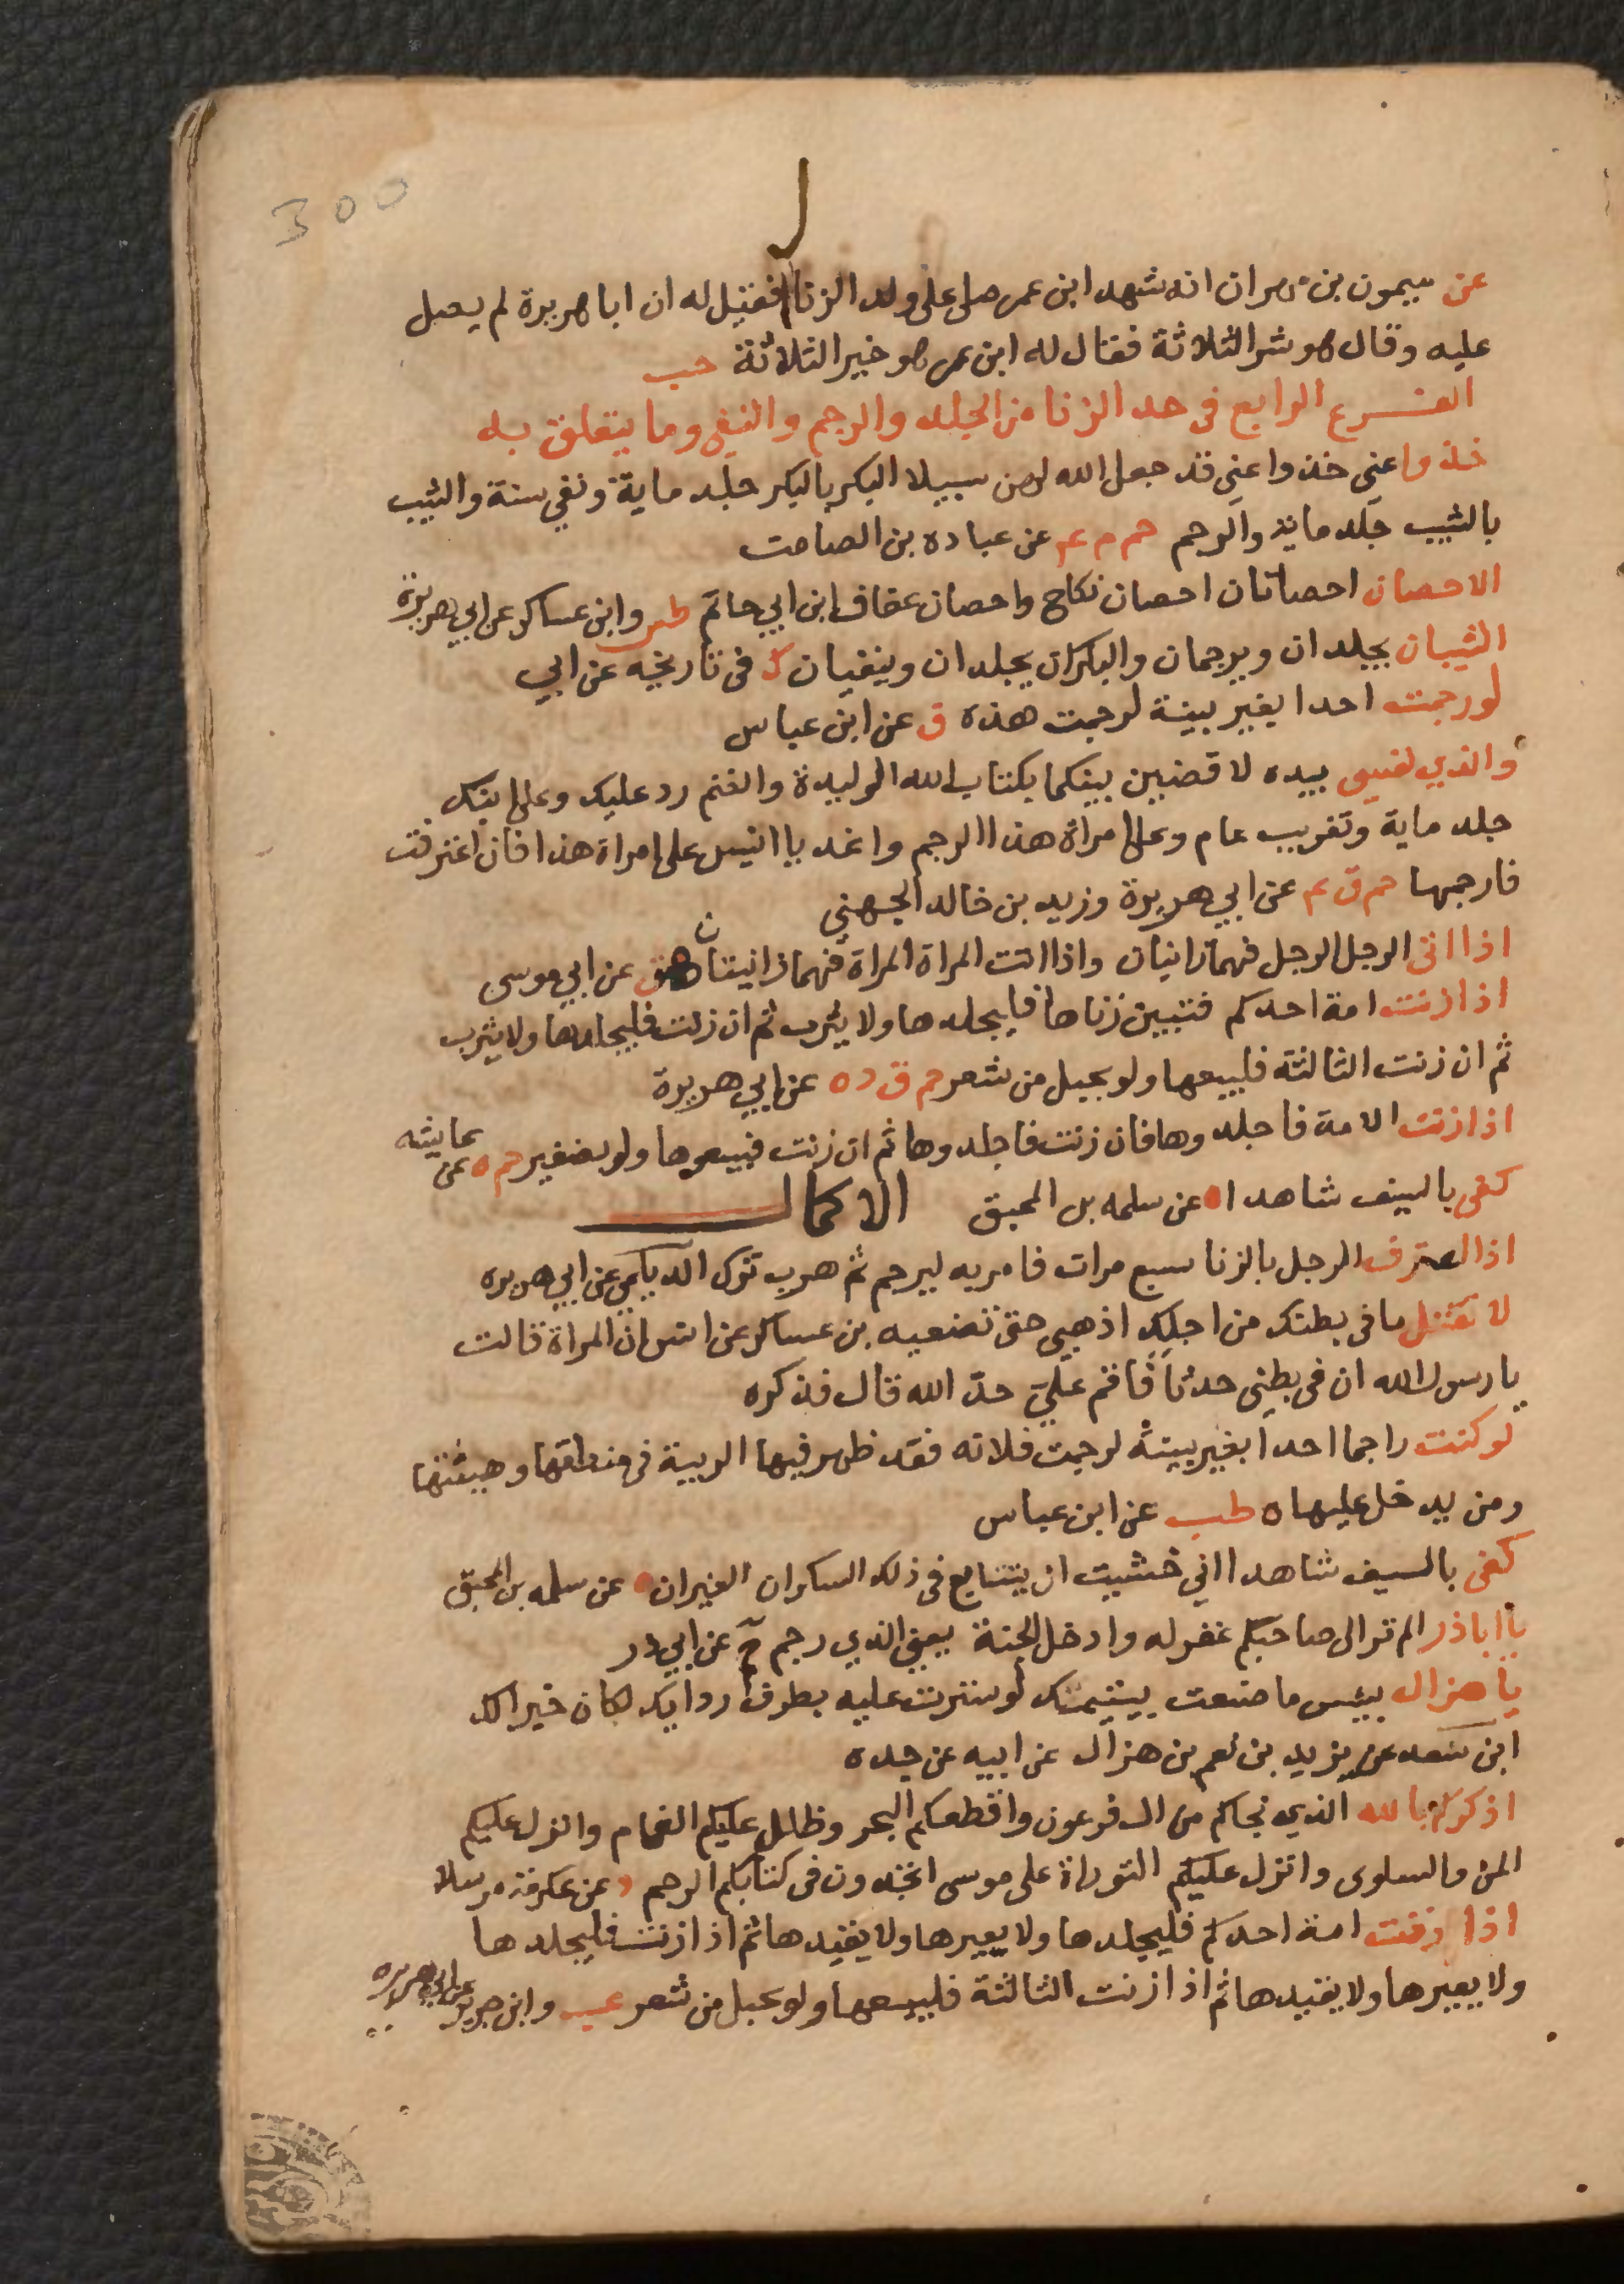 300
عن ميمون بن مهران انه شهد ابن عمر صلى على ولد الزنا فقيل له ان ابا هريرة لم يصل
عليه وقال هو شر الثلاثة فقال له ابن عمر هو خير الثلاثة حب
الفرع الرابع فى حد الزنا من الجلد والرجم والنفى وما يتعلق به
خذوا عنى خذوا عنى قد جعل الله لهن سبيلا البكر بالبكر جلد ماية ونفى سنة والثيب
بالثيب جلد ماية والرجم حم م عم عن عباده بن الصامت
الاحصان احصانان احصان نكاح واحصان عفاف ابن ابي حاتم طس وابن عساكر عن ابي هريرة
الثيبان يجلدان ويرجمان والبكران يجلدان وينفيان ك فى تاريخه عن ابي
لو رجمت احدا بغير بينة لرجمت هذه ق عن ابن عباس
والذي نفسى بيده لاقضين بينكما بكتاب الله الوليدة والغنم رد عليك وعلى ابنك
جلد ماية وتغريب عام وعلى امراة هذا الرجم واغد يا انيس على امراة هذا فان اعترفت
فارجمها حم ق عم عن ابي هريرة وزيد بن خالد الجهني
اذا اتى الرجل الرجل فهما زانيان واذا اتت المراة المراة فهما زانيتان هق عن ابي موسى
اذا زنت امة احدكم فتبين زناها فليجلدها ولا يثرب ثم ان زنت فليجلدها ولا يثرب
ثم ان زنت الثالثة فليبعها ولو بحبل من شعر حم ق د ه عن ابي هريرة
اذا زنت الامة فاجلدوها فان زنت فاجلدوها ثم ان زنت فبيعوها ولو بضفير حم ه عن عايشه
كفى بالسيف شاهدا ه عن سلمه بن المحبق الاكمال
اذا اعترف الرجل بالزنا سبع مرات فامر به ليرجم ثم هرب ترك الديلمي عن ابي هريره
لا نقتل ما فى بطنك من اجلك اذهبى حتى تضعيه بن عساكر عن انس ان المراة قالت
يا رسول الله ان فى بطنى حدثا فاقم علي حد الله قال فذكره
لو كنت راجما احدا بغير بينة لرجمت فلانه فقد ظهر فيها الريبة فى منطقها وهيئتها
ومن يدخل عليها ه طب عن ابن عباس
كفى بالسيف شاهدا اني خشيت ان يتتايع فى ذلك السكران الغيران ه عن سلمه بن المحبق
يا اباذر الم تر الى صاحبكم غفر له وادخل الجنة يعنى الذي رجم حم عن ابي ذر
يا هزال بيس ما صنعت بيتيمتك لو سترت عليه بطرف ردايك لكان خيرا لك
ابن سعد عن يزيد بن نعيم بن هزال عن ابيه عن جده
اذكركم بالله الذي نجاكم من ال فرعون واقطعكم البحر وظلل عليكم الغمام وانزل عليكم
المن والسلوى وانزل عليكم التوراة على موسى اتجدون فى كتابكم الرجم د عن عكرمة مرسلا
اذا زنت امة احدكم فليجلدها ولا يعيرها ولا يفيدها ثم اذا زنت فليجلدها
ولا يعيرها ولا يفيدها ثم اذا زنت الثالثة فليبعها ولو بحبل من شعر عب وابن جرير عن ابي هريره